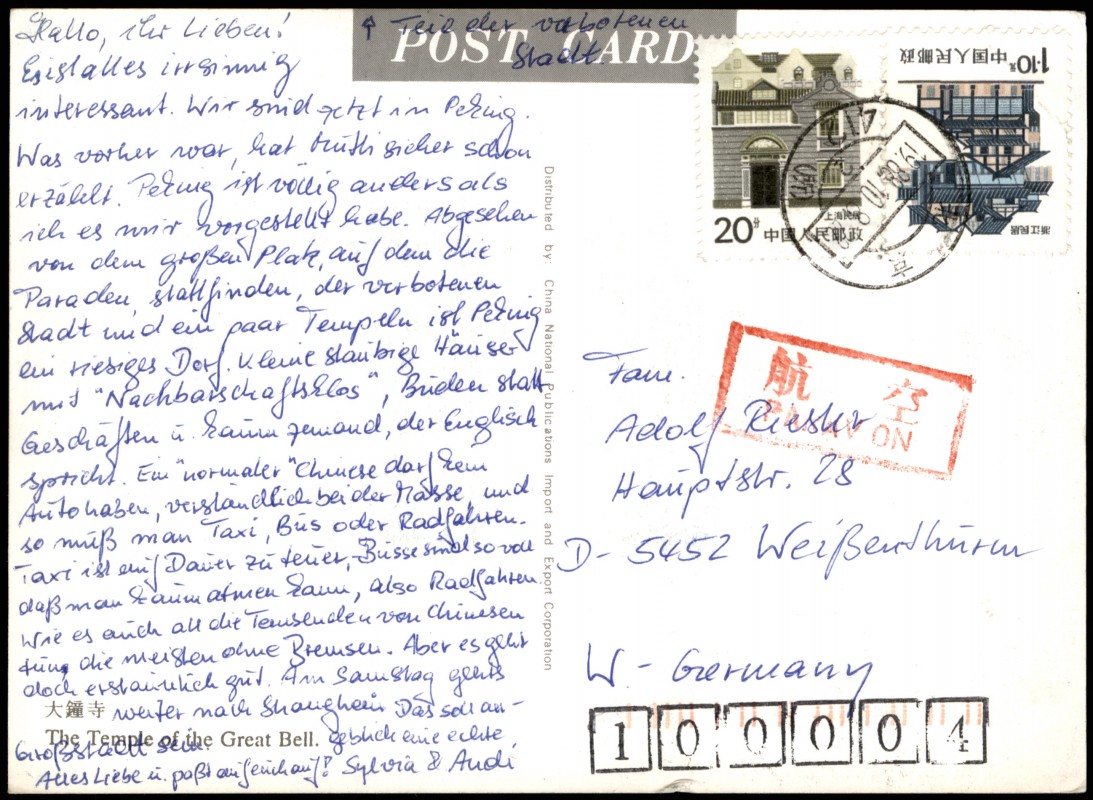 ↑ Teil der verbotenen
Stadt.
POST CARD
Hallo, ihr Lieben!
Es ist alles irrsinnig
interessant. Wir sind jetzt in Peking.
Was vorher war, hat Ruth sicher schon
erzählt. Peking ist völlig anders als
ich es mir vorgestellt habe. Abgesehen
von dem großen Platz, auf dem die
Paraden stattfinden, der verbotenen
Stadt und ein paar Tempeln ist Peking
ein riesiges Dorf. Kleine staubige Häuser
mit "Nachbarschaftsklos", Buden statt
Geschäften u. kaum jemand, der Englisch
spricht. Ein "normaler" Chinese darf kein
Auto haben, verständlich bei der Masse, und
so muß man Taxi, Bus oder Radfahren.
Taxi ist auf Dauer zu teuer, Busse sind so voll
daß man kaum atmen kann, also Radfahren.
Wie es auch all die Tausenden von Chinesen
tun, die meisten ohne Bremsen. Aber es geht
doch erstaunlich gut. Am Samstag gehts
weiter nach Shanghai. Das soll an-
geblich eine echte
Großstadt sein.
Alles Liebe u. paßt auf euch auf! Sylvia & Andi
大鐘寺
The Temple of the Great Bell.
Distributed by China National Publications Import and Export Corporation
20分 中国人民邮政
上海民居
1·10元 中国人民邮政
浙江民居
1988.10
京
航空
PAR AVION
Fam.
Adolf
Hauptstr. 28
D-5452 Weißenthurm
W-Germany
100004